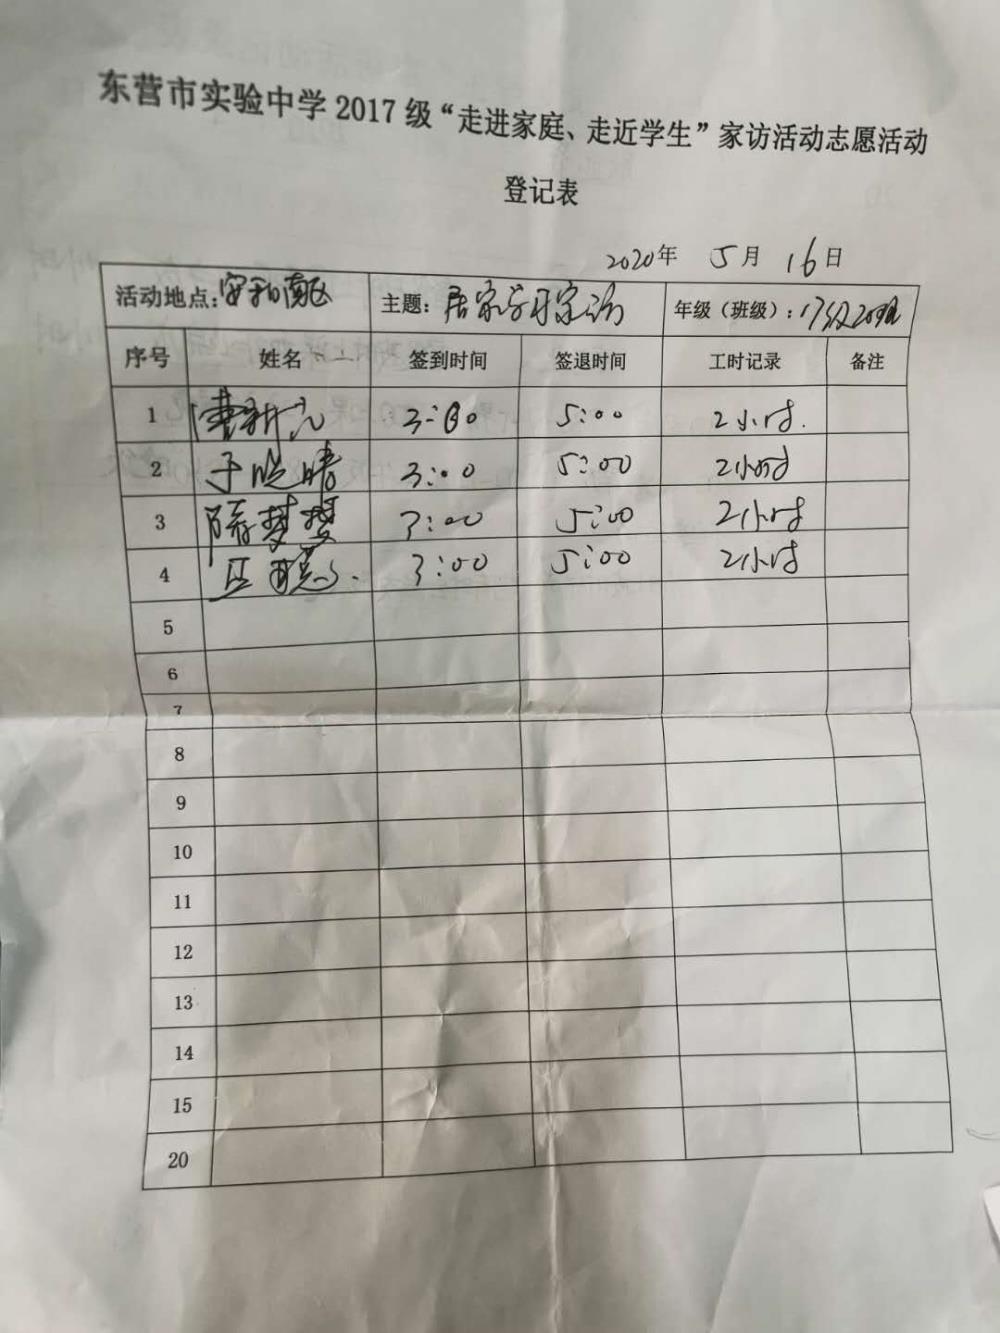 东营市实验中学2017级“走进家庭、走近学生”家访活动志愿活动
登记表
2020年 5月 16日
活动地点:安和南区 主题:居家学习家访 年级（班级）:17级20班
序号 姓名 签到时间 签退时间 工时记录 备注
1 3:00 5:00 2小时.
2 于晓晴 3:00 5:00 2小时
3 隋梦 3:00 5:00 2小时
4 3:00 5:00 2小时
5
6
7
8
9
10
11
12
13
14
15
20